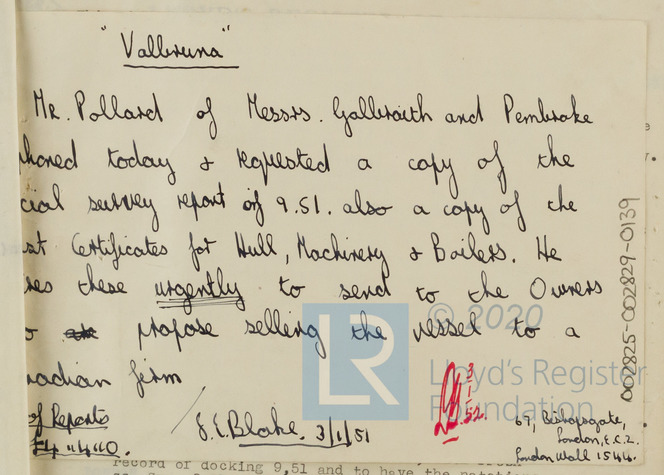 "Valleruna"
Mr. Pollard of Messrs. Galbraith and Pembroke
phoned today & requested a copy of the
cial survey report of 9.51. also a copy of the
st Certificates for Hull, Machinery & Boilers. He
res these urgently to send to the Owners
o propose selling the vessel to a
nadian firm
of Reports
S.E. Blake. 3/1/51
3
1
52.
67, Bishopsgate,
London, E.C.2.
London Wall 1544.
002825-002829-0139
© 2020
LR
Lloyd's Register
Foundation
record of docking 9,51 and to have the notation